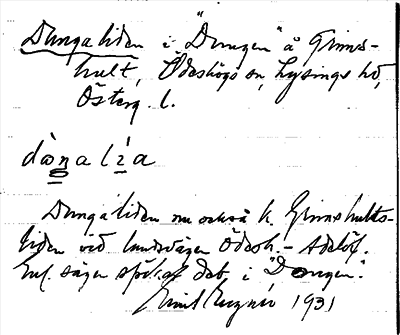 Dungaliden i "Dungen" å Grims-
hult, Ödeshögs sn, Lysings hd,
Österg. l.
Dungaliden nu också k. Grimshults-
liden vid landsvägen Ödesh. - Adelöf.
säger i "Dongen".
1931